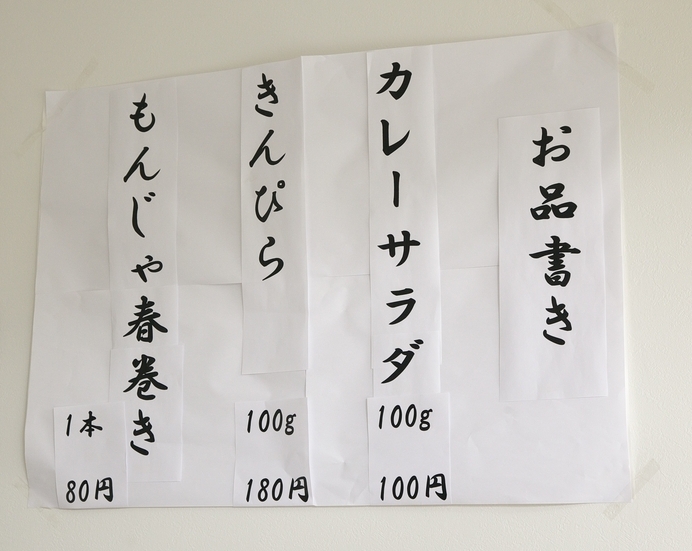 お品書き
カレーサラダ
100g
100円
きんぴら
100g
180円
もんじゃ春巻き
1本
80円